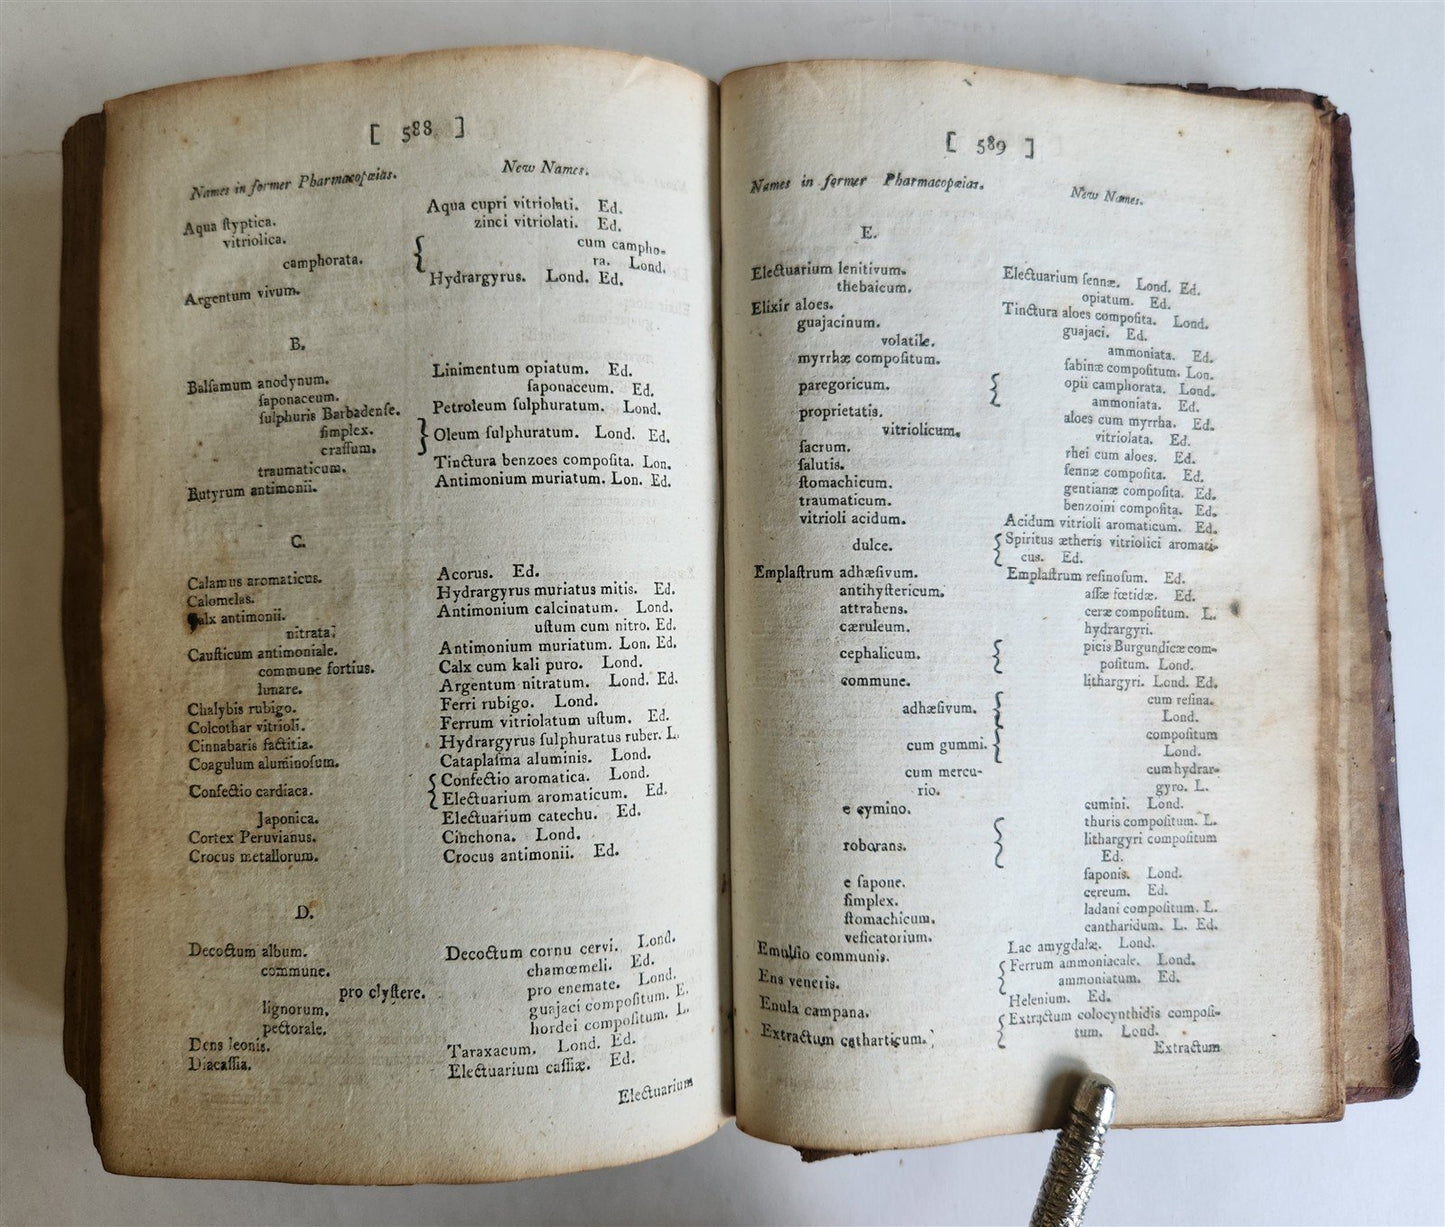 [ 588 ]
Names in former Pharmacopœias. New Names.
Aqua ſtyptica. Aqua cupri vitriolati. Ed.
vitriolica. zinci vitriolati. Ed.
camphorata. { cum campho-
ra. Lond.
Argentum vivum. Hydrargyrus. Lond. Ed.
B.
Balſamum anodynum. Linimentum opiatum. Ed.
ſaponaceum. ſaponaceum. Ed.
ſulphuris Barbadenſe. Petroleum ſulphuratum. Lond.
ſimplex. } Oleum ſulphuratum. Lond. Ed.
craſſum.
traumaticum. Tinctura benzoes compoſita. Lon.
Butyrum antimonii. Antimonium muriatum. Lon. Ed.
C.
Calamus aromaticus. Acorus. Ed.
Calomelas. Hydrargyrus muriatus mitis. Ed.
Calx antimonii. Antimonium calcinatum. Lond.
nitrata. uſtum cum nitro. Ed.
Cauſticum antimoniale. Antimonium muriatum. Lon. Ed.
commune fortius. Calx cum kali puro. Lond.
lunare. Argentum nitratum. Lond. Ed.
Chalybis rubigo. Ferri rubigo. Lond.
Colcothar vitrioli. Ferrum vitriolatum uſtum. Ed.
Cinnabaris factitia. Hydrargyrus ſulphuratus ruber. L.
Coagulum aluminoſum. Cataplaſma aluminis. Lond.
Confectio cardiaca. { Confectio aromatica. Lond.
Electuarium aromaticum. Ed.
Japonica. Electuarium catechu. Ed.
Cortex Peruvianus. Cinchona. Lond.
Crocus metallorum. Crocus antimonii. Ed.
D.
Decoctum album. Decoctum cornu cervi. Lond.
commune. chamœmeli. Ed.
pro clyſtere. pro enemate. Lond.
lignorum. guajaci compoſitum. E.
pectorale. hordei compoſitum. L.
Dens leonis. Taraxacum. Lond. Ed.
Diacaſſia. Electuarium caſſiæ. Ed.
Electuarium
[ 589 ]
Names in former Pharmacopœias. New Names.
E.
Electuarium lenitivum. Electuarium ſennæ. Lond. Ed.
thebaicum. opiatum. Ed.
Elixir aloes. Tinctura aloes compoſita. Lond.
guajacinum. guajaci. Ed.
volatile. ammoniata. Ed.
myrrhæ compoſitum. ſabinæ compoſitum. Lon.
paregoricum. { opii camphorata. Lond.
ammoniata. Ed.
proprietatis. aloes cum myrrha. Ed.
vitriolicum. vitriolata. Ed.
ſacrum. rhei cum aloes. Ed.
ſalutis. ſennæ compoſita. Ed.
ſtomachicum. gentianæ compoſita. Ed.
traumaticum. benzoini compoſita. Ed.
vitrioli acidum. Acidum vitrioli aromaticum. Ed.
dulce. { Spiritus ætheris vitriolici aromati-
cus. Ed.
Emplaſtrum adhæſivum. Emplaſtrum reſinoſum. Ed.
antihyſtericum. aſſæ fœtidæ. Ed.
attrahens. ceræ compoſitum. L.
cæruleum. hydrargyri.
cephalicum. { picis Burgundicæ com-
poſitum. Lond.
commune. lithargyri. Lond. Ed.
adhæſivum. { cum reſina.
Lond.
cum gummi. { compoſitum
Lond.
cum mercu- cum hydrar-
rio. gyro. L.
e cymino. cumini. Lond.
roborans. { thuris compoſitum. L.
lithargyri compoſitum
Ed.
e ſapone. ſaponis. Lond.
ſimplex. cereum. Ed.
ſtomachicum. ladani compoſitum. L.
veſicatorium. cantharidum. L. Ed.
Emulſio communis. Lac amygdalæ. Lond.
Ens veneris. { Ferrum ammoniacale. Lond.
ammoniatum. Ed.
Enula campana. Helenium. Ed.
Extractum catharticum. { Extractum colocynthidis compoſi-
tum. Lond.
Extractum